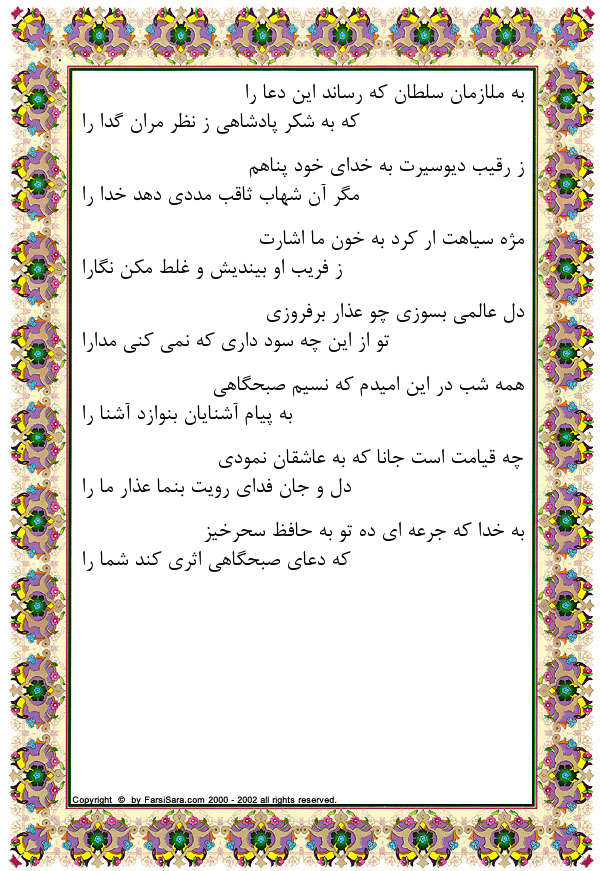 به ملازمان سلطان که رساند این دعا را
که به شکر پادشاهی ز نظر مران گدا را
ز رقیب دیوسیرت به خدای خود پناهم
مگر آن شهاب ثاقب مددی دهد خدا را
مژه سیاهت ار کرد به خون ما اشارت
ز فریب او بیندیش و غلط مکن نگارا
دل عالمی بسوزی چو عذار برفروزی
تو از این چه سود داری که نمی کنی مدارا
همه شب در این امیدم که نسیم صبحگاهی
به پیام آشنایان بنوازد آشنا را
چه قیامت است جانا که به عاشقان نمودی
دل و جان فدای رویت بنما عذار ما را
به خدا که جرعه ای ده تو به حافظ سحرخیز
که دعای صبحگاهی اثری کند شما را
Copyright © by FarsiSara.com 2000 - 2002 all rights reserved.